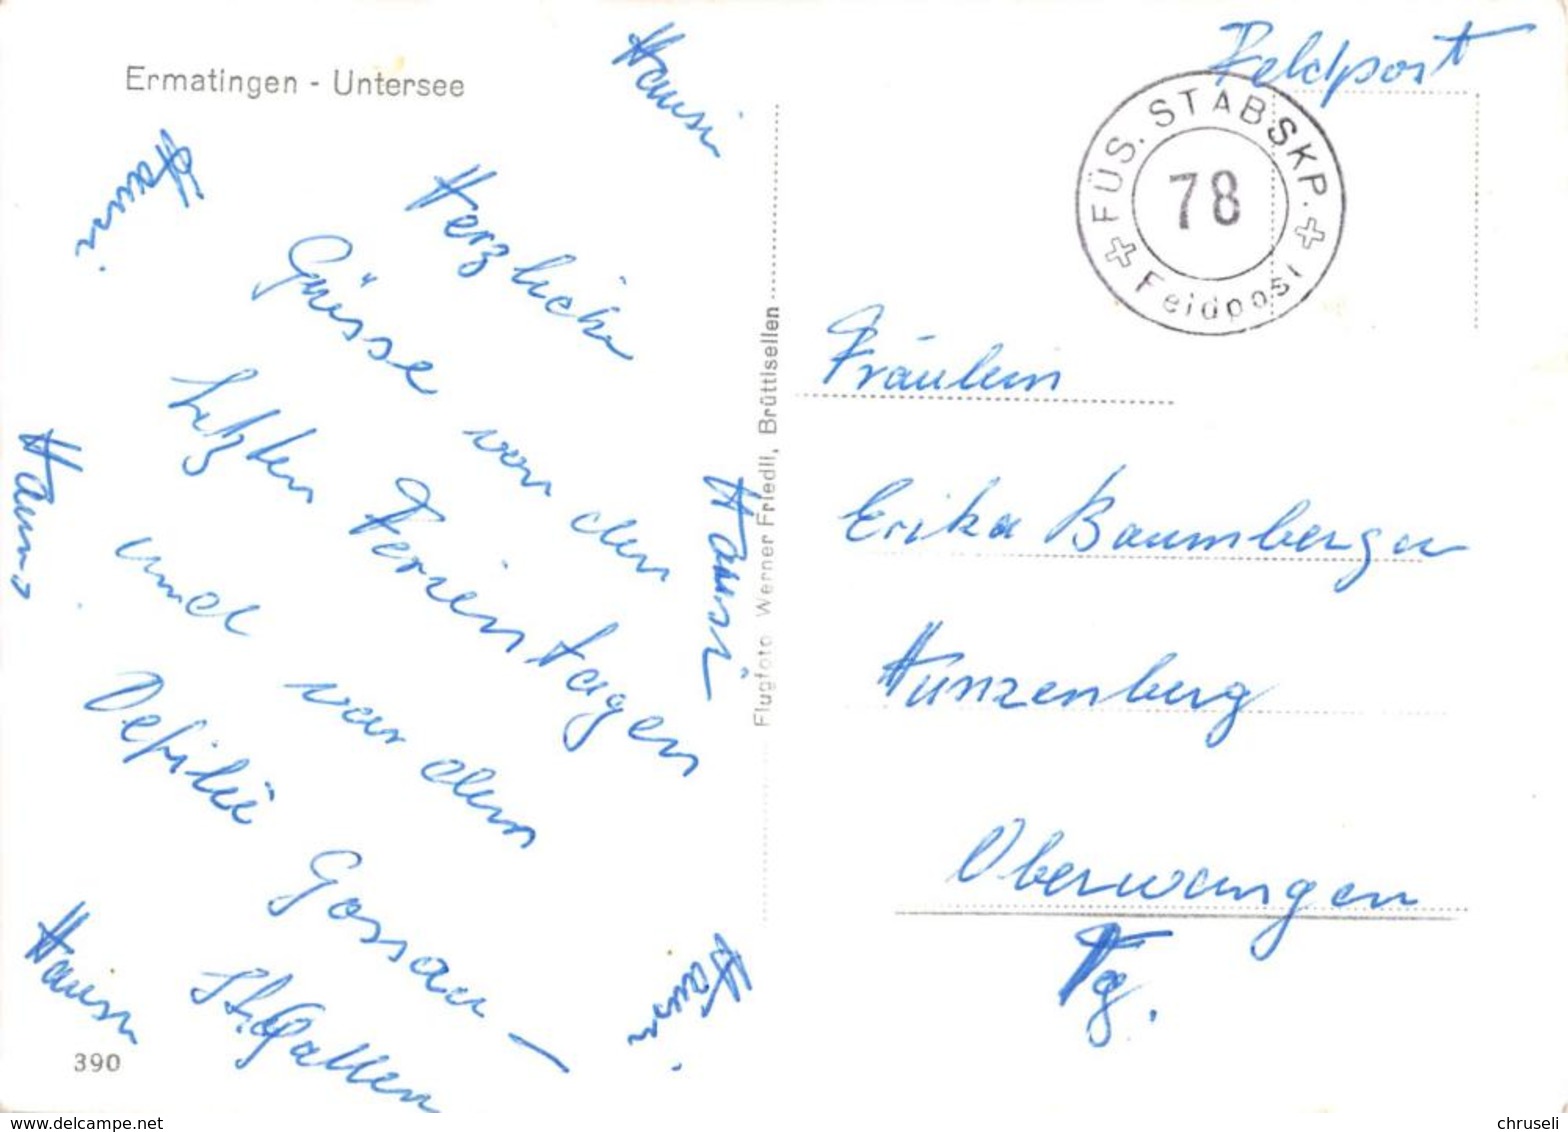 Ermatingen - Untersee
Hansi
Hansi
Herzliche
Grüsse von den
letzten Ferientagen
und vor dem
Defilée Gossau –
St. Gallen
Hansi
Hansi
Hansi
Hansi
390
Flugfoto Werner Friedli, Brüttisellen
Feldpost
FÜS. STABSKP.
78
Feldpost
Fräulein
Erika Baumberger
Hunzenberg
Oberwangen
Tg.
www.delcampe.net
chruseli